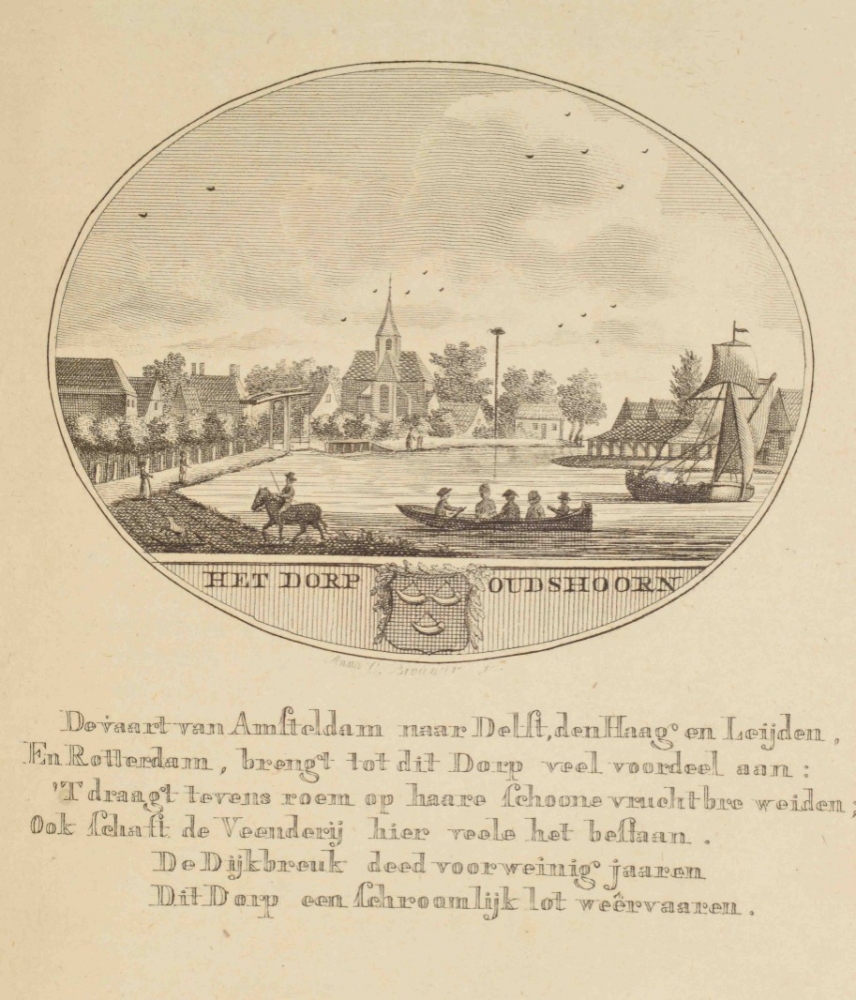 HET DORP OUDSHOORN
De vaart van Amſteldam naar Delft, den Haag en Leijden,
En Rotterdam, brengt tot dit Dorp veel voordeel aan:
'T draagt tevens roem op haare ſchoone vruchtbre weiden;
Ook ſchaft de Veenderij hier veele het beſtaan.
De Dijkbreuk deed voor weinig jaaren
Dit Dorp een ſchroomlijk lot weêrvaaren.